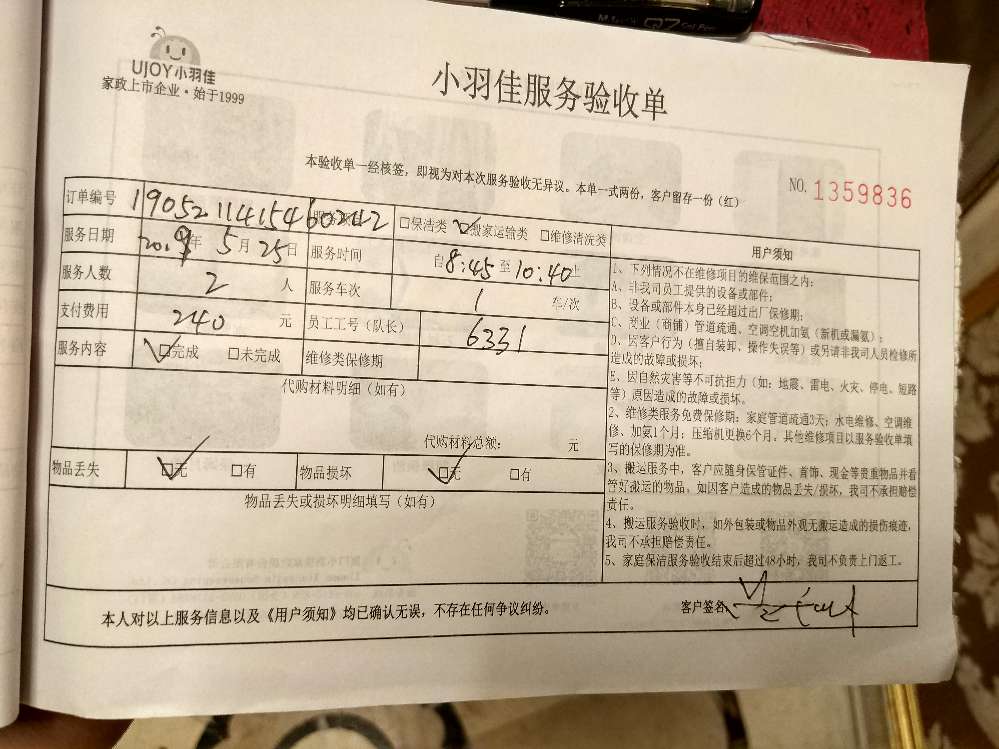 M Q7
UJOY小羽佳
家政上市企业·始于1999
小羽佳服务验收单
本验收单一经核签，即视为对本次服务验收无异议。本单一式两份，客户留存一份（红）
NO. 1359836
订单编号 1905211415460242 □保洁类 ☑搬家运输类 □维修清洗类
服务日期 2019年5月25日 服务时间 自8:45至10:40止
服务人数 2 人 服务车次 1 车/次
支付费用 240 元 员工工号（队长） 6331
服务内容 ☑完成 □未完成 维修类保修期
代购材料明细（如有）
代购材料总额： 元
物品丢失 ☑无 □有 物品损坏 ☑无 □有
物品丢失或损坏明细填写（如有）
用户须知
1、下列情况不在维修项目的维保范围之内：
A、非我司员工提供的设备或部件；
B、设备或部件本身已经超过出厂保修期；
C、商业（商铺）管道疏通、空调空机加氨（新机或漏氨）；
D、因客户行为（擅自装卸、操作失误等）或另请非我司人员检修所
造成的故障或损坏；
E、因自然灾害等不可抗拒力（如：地震、雷电、火灾、停电、短路
等）原因造成的故障或损坏。
2、维修类服务免费保修期：家庭管道疏通3天；水电维修、空调维
修、加氨1个月；压缩机更换6个月。其他维修项目以服务验收单填
写的保修期为准。
3、搬运服务中，客户应随身保管证件、首饰、现金等贵重物品并看
管好搬运的物品，如因客户造成的物品丢失/损坏，我司不承担赔偿
责任。
4、搬运服务验收时，如外包装或物品外观无搬运造成的损伤痕迹，
我司不承担赔偿责任。
5、家庭保洁服务验收结束后超过48小时，我司不负责上门返工。
本人对以上服务信息以及《用户须知》均已确认无误，不存在任何争议纠纷。
客户签名